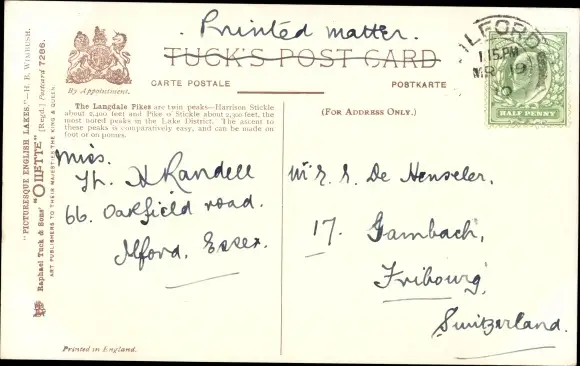 Printed matter.
TUCK'S POST CARD
CARTE POSTALE
POSTKARTE
By Appointment.
The Langdale Pikes are twin peaks—Harrison Stickle
about 2,400 feet and Pike o' Stickle about 2,300 feet, the
most noted peaks in the Lake District. The ascent to
these peaks is comparatively easy, and can be made on
foot or on ponies.
(FOR ADDRESS ONLY.)
ILFORD
1.15 PM
MR 9
10
HALF PENNY
Miss.
H Randell
66. Oakfield road.
Ilford, Essex.
De Henseler,
17. Gambach,
Fribourg,
Switzerland.
"PICTURESQUE ENGLISH LAKES."—H. B. WIMBUSH.
Raphael Tuck & Sons' "OILETTE" [Regd.] Postcard 7286.
ART PUBLISHERS TO THEIR MAJESTIES THE KING & QUEEN.
Printed in England.